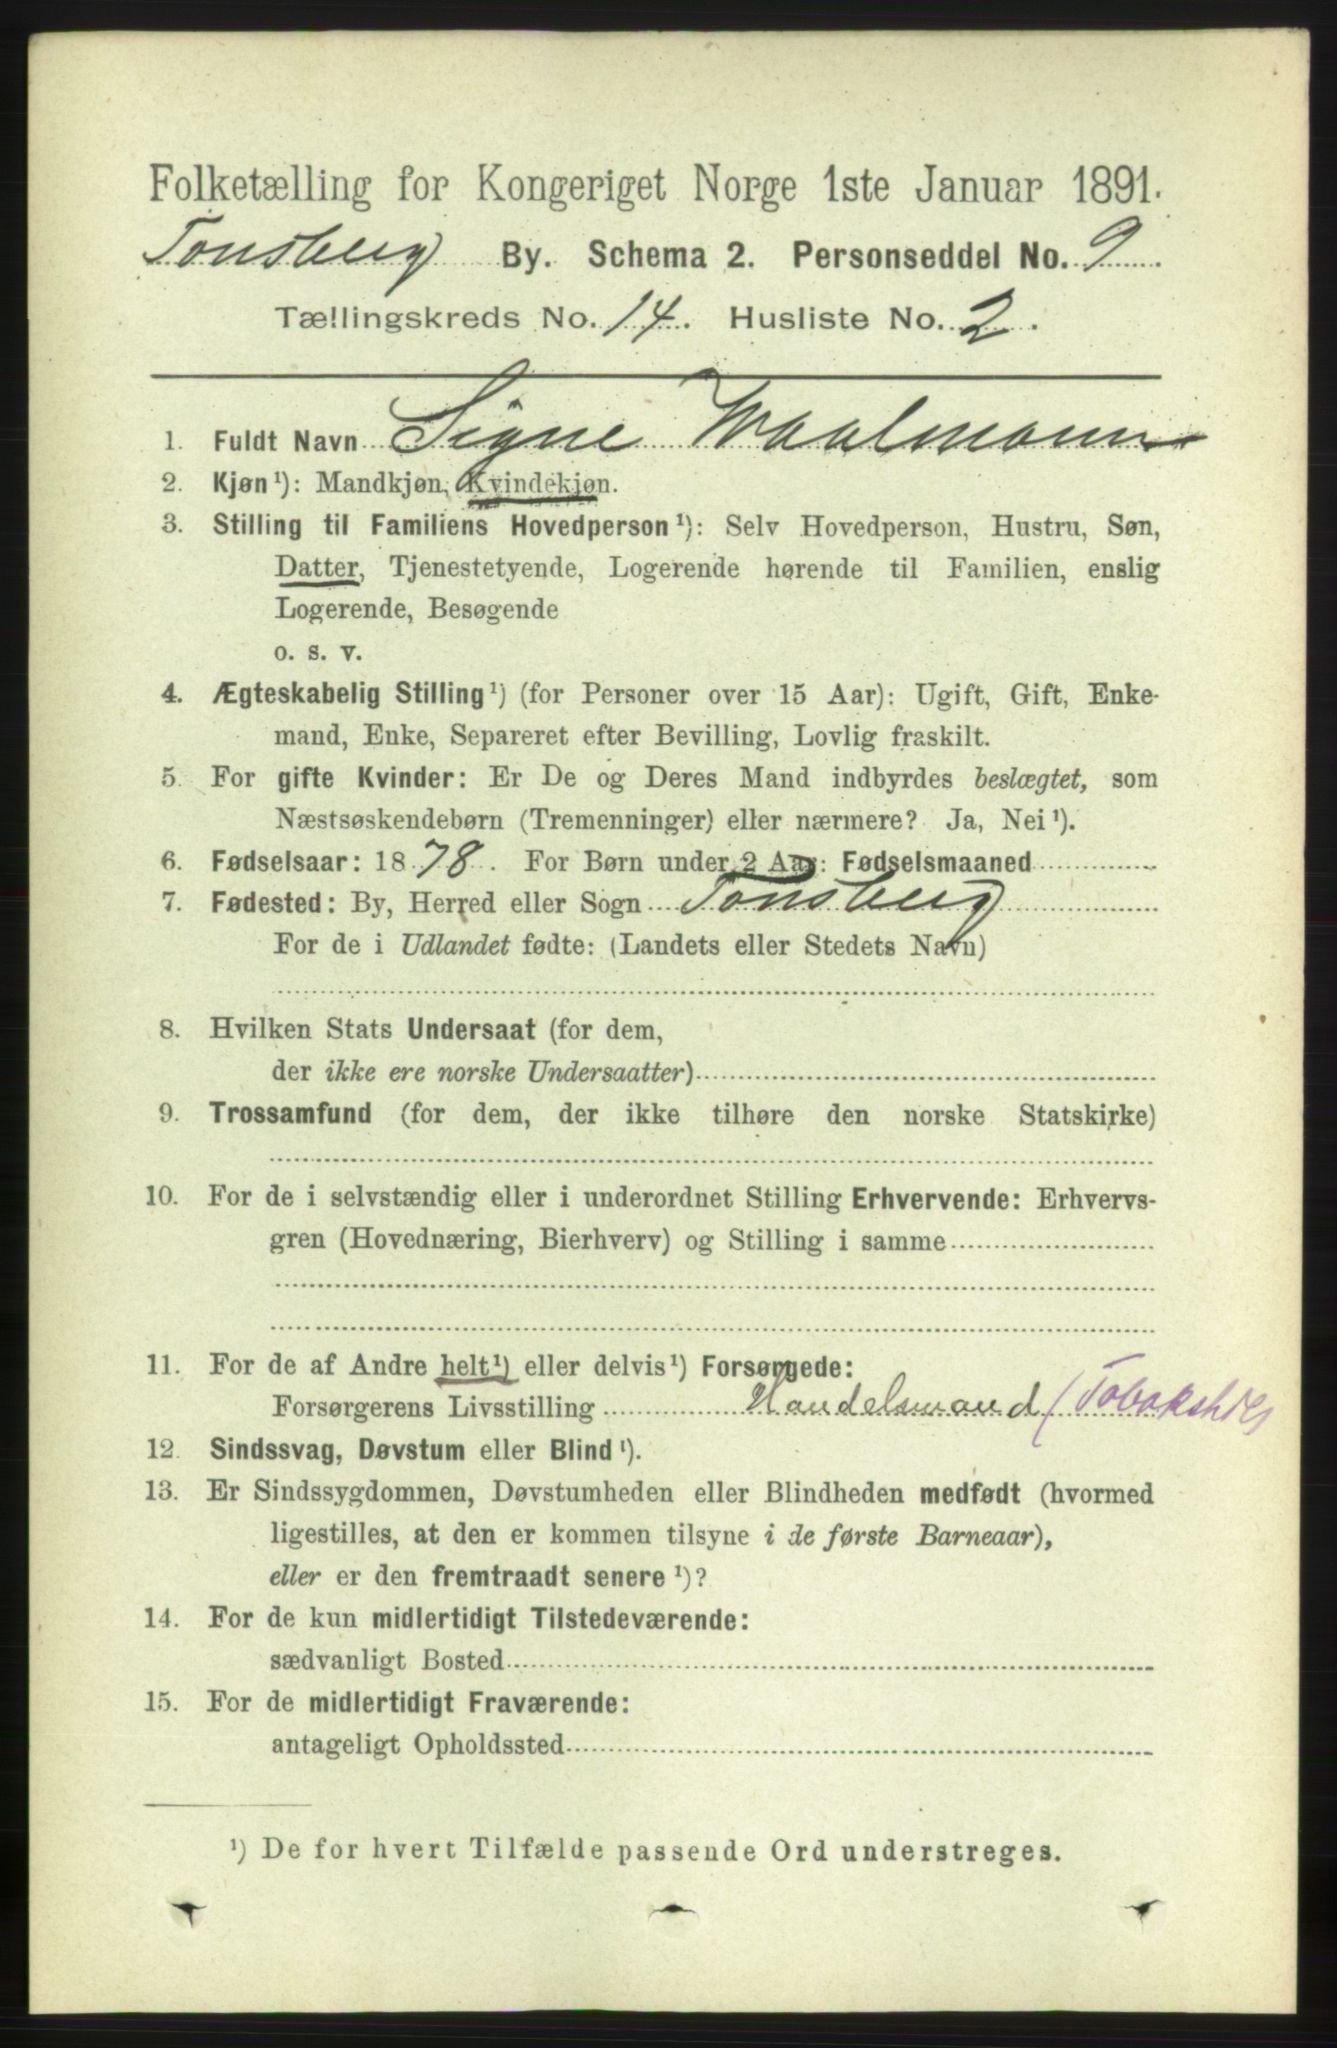 Folketælling for Kongeriget Norge 1ste Januar 1891.
Tønsberg By. Schema 2. Personseddel No. 9
Tællingskreds No. 14. Husliste No. 2.
1. Fuldt Navn Signe Waalmann
2. Kjøn ¹): Mandkjøn, Kvindekjøn.
3. Stilling til Familiens Hovedperson ¹): Selv Hovedperson, Hustru, Søn,
Datter, Tjenestetyende, Logerende hørende til Familien, enslig
Logerende, Besøgende
o. s. v.
4. Ægteskabelig Stilling ¹) (for Personer over 15 Aar): Ugift, Gift, Enke-
mand, Enke, Separeret efter Bevilling, Lovlig fraskilt.
5. For gifte Kvinder: Er De og Deres Mand indbyrdes beslægtet, som
Næstsøskendebørn (Tremenninger) eller nærmere? Ja, Nei ¹).
6. Fødselsaar: 1878. For Børn under 2 Aar: Fødselsmaaned
7. Fødested: By, Herred eller Sogn Tønsberg
For de i Udlandet fødte: (Landets eller Stedets Navn)
8. Hvilken Stats Undersaat (for dem,
der ikke ere norske Undersaatter)
9. Trossamfund (for dem, der ikke tilhøre den norske Statskirke)
10. For de i selvstændig eller i underordnet Stilling Erhvervende: Erhvervs-
gren (Hovednæring, Bierhverv) og Stilling i samme
11. For de af Andre helt ¹) eller delvis ¹) Forsørgede:
Forsørgerens Livsstilling Handelsmand (Tobakshdl)
12. Sindssvag, Døvstum eller Blind ¹).
13. Er Sindssygdommen, Døvstumheden eller Blindheden medfødt (hvormed
ligestilles, at den er kommen tilsyne i de første Barneaar),
eller er den fremtraadt senere ¹)?
14. For de kun midlertidigt Tilstedeværende:
sædvanligt Bosted
15. For de midlertidigt Fraværende:
antageligt Opholdssted
¹) De for hvert Tilfælde passende Ord understreges.